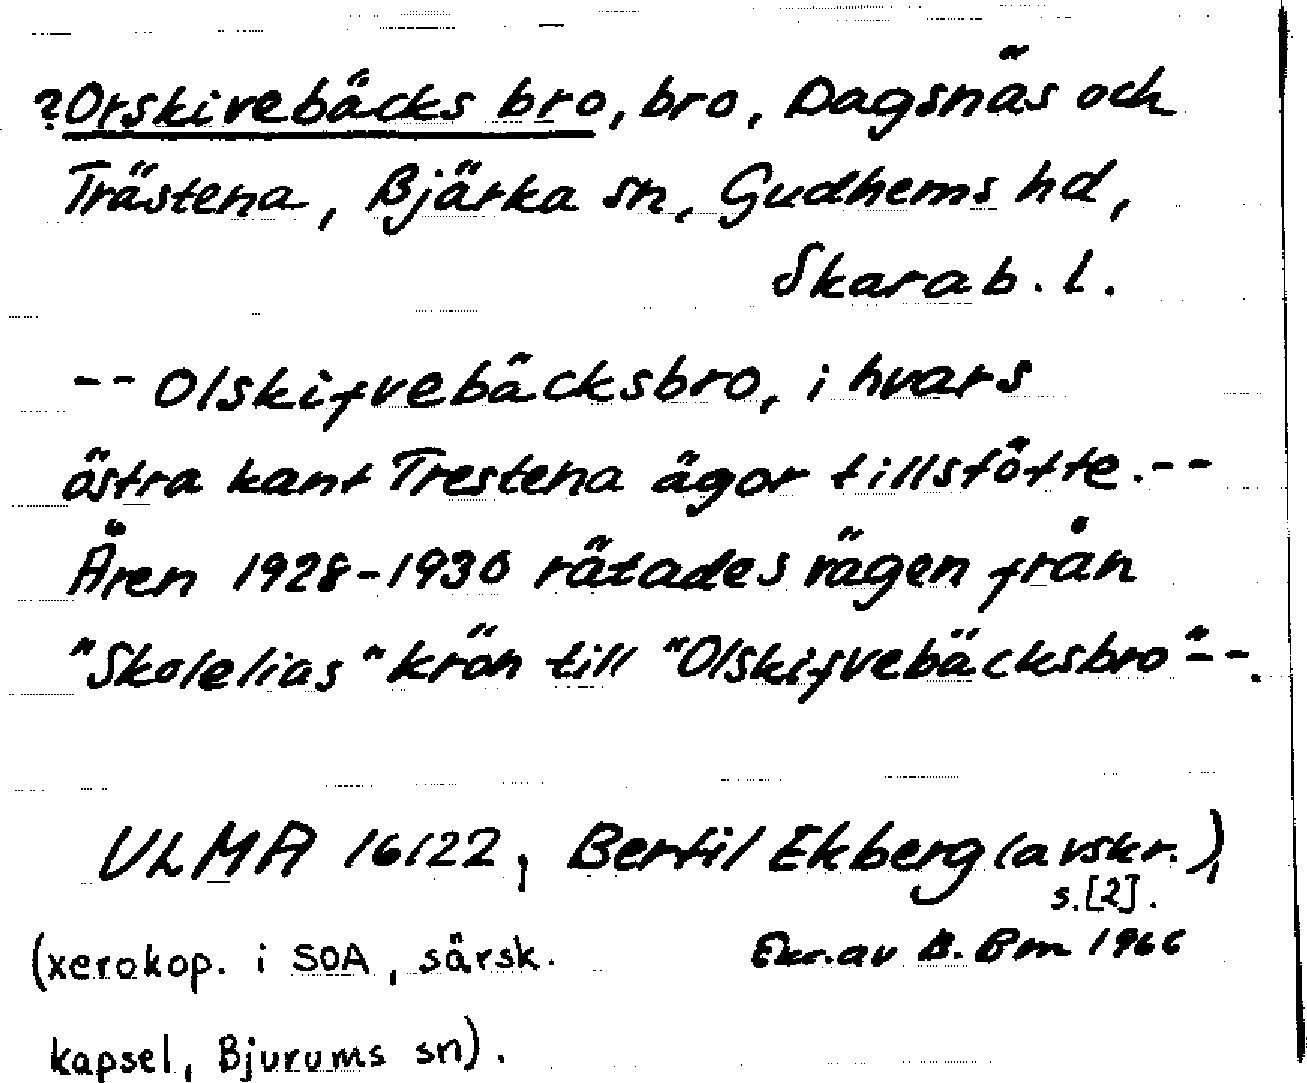 ?Orskivebäcks bro, bro, Dagsnäs och
Trästena, Bjärka sn, Gudhems hd,
Skarab. l.
-- Olskifvebäcksbro, i hvars
östra kant Trestena ägor tillstötte.--
Åren 1928-1930 rätades vägen från
"Skolelias" krön till "Olskifvebäcksbro"--.
ULMA 16122, Bertil Ekberg (avskr.),
s. [2].
(xerokop. i SOA, särsk.
Exc. av B. Bm 1966
kapsel, Bjurums sn).